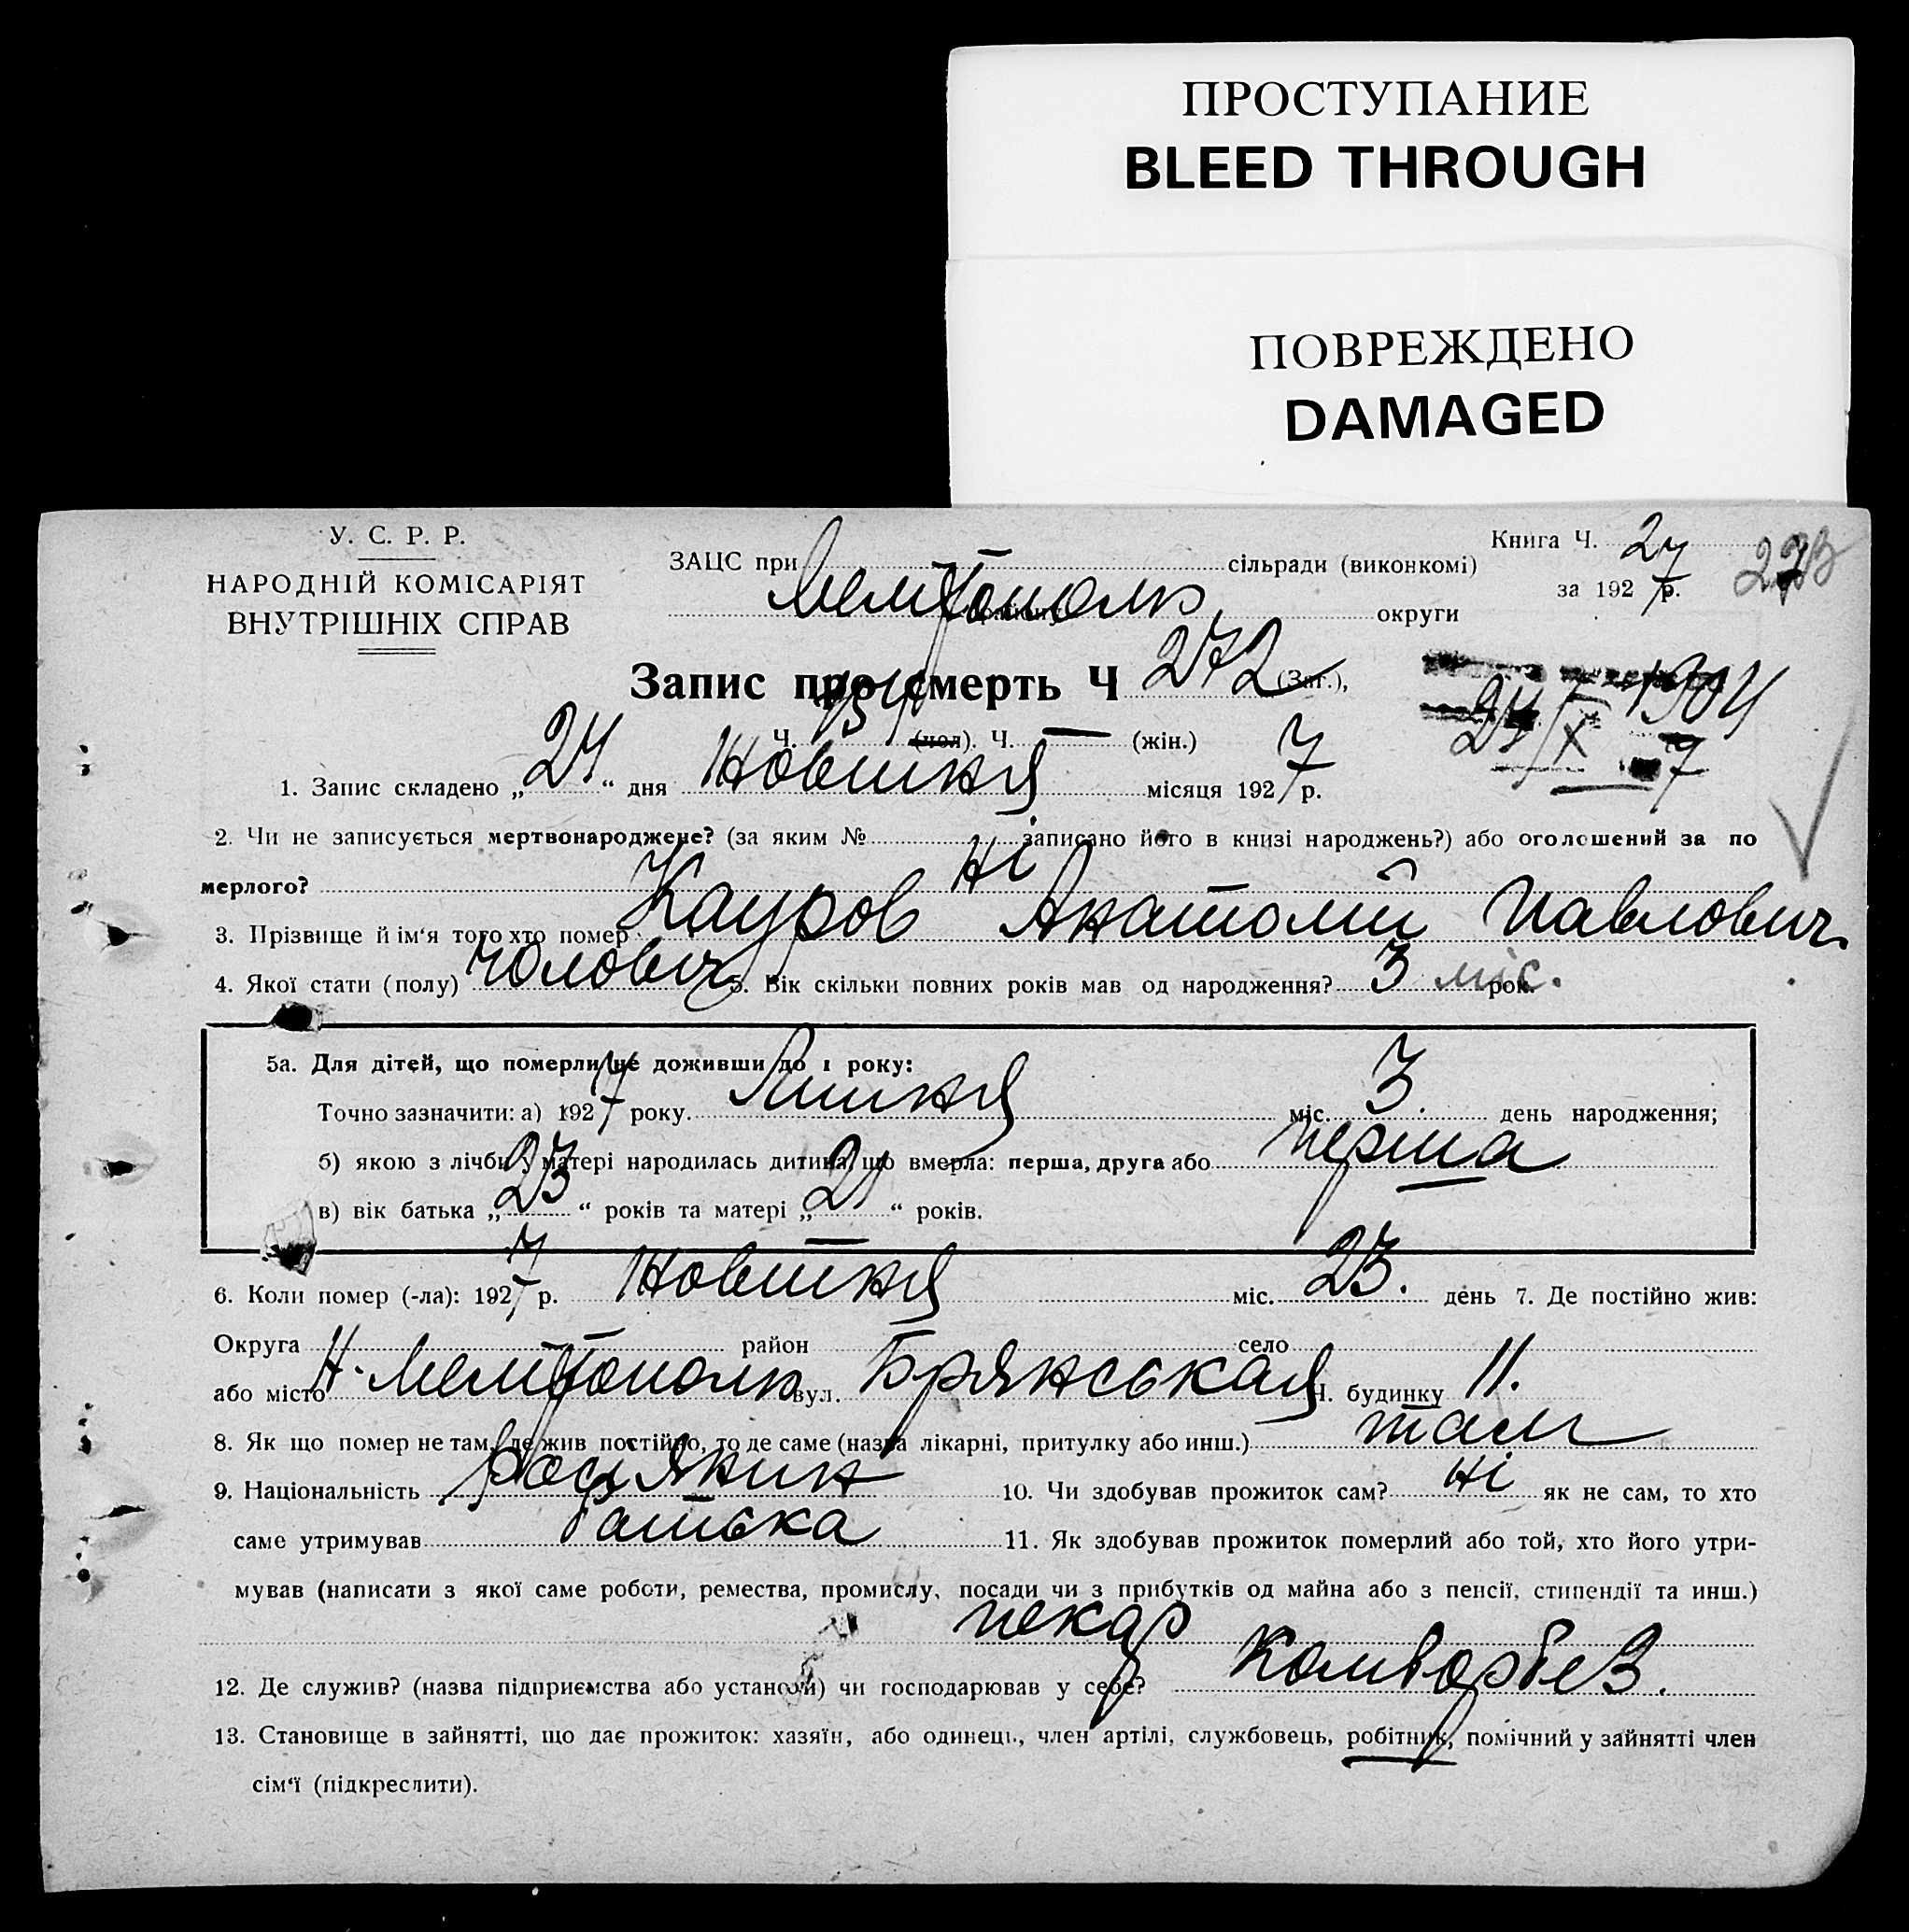 ПРОСТУПАНИЕ
BLEED THROUGH
ПОВРЕЖДЕНО
DAMAGED
У. С. Р. Р.
НАРОДНІЙ КОМІСАРІЯТ
ВНУТРІШНІХ СПРАВ
Книга Ч. 27
за 1927 р.
273
ЗАЦС при сільради (виконкомі)
Мелітополь округи
Запис про смерть Ч 272 (Заг.),
Ч. 154 (чол). Ч. — (жін.)
1904
24/X 7
1. Запис складено „24“ дня Жовтня місяця 1927 р.
2. Чи не записується мертвонароджене? (за яким № записано його в книзі народжень?) або оголошений за по
мерлого? Ні
3. Прізвище й ім'я того хто помер Кауров Анатолій Павлович.
4. Якої стати (полу) Чолович 5. Вік скільки повних років мав од народження? 3 міс. рок.
5а. Для дітей, що померли не доживши до 1 року:
Точно зазначити: а) 1927 року Липня міс. 3. день народження;
б) якою з лічби у матері народилась дитина, що вмерла: перша, друга або перша
в) вік батька „23“ років та матері „21“ років.
6. Коли помер (-ла): 1927 р. Жовтня міс. 23. день 7. Де постійно жив:
Округа район село
або місто Мелітополь вул. Брянськая Ч. будинку 11.
8. Як що помер не там, де жив постійно, то де саме (назва лікарні, притулку або инш.) там
9. Національність росіянин 10. Чи здобував прожиток сам? ні як не сам, то хто
саме утримував батька 11. Як здобував прожиток померлий або той, хто його утри-
мував (написати з якої саме роботи, ремества, промислу, посади чи з прибутків од майна або з пенсії, стипендії та инш.)
пекар
12. Де служив? (назва підприємства або установи) чи господарював у себе? Комборбез.
13. Становище в зайнятті, що дає прожиток: хазяїн, або одинець, член артілі, службовець, робітник, помічний у зайнятті член
сім'ї (підкреслити).